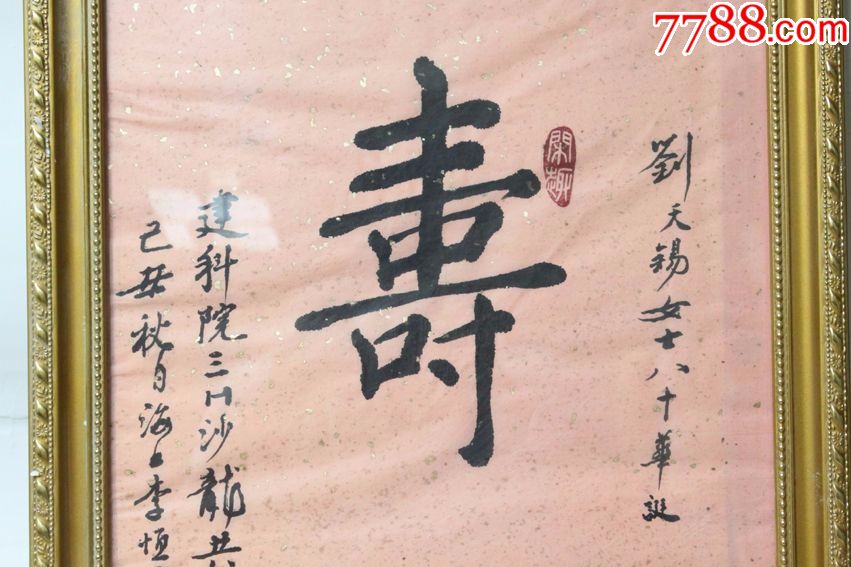 7788.com
劉天錫女士八十華誕
閑趣
壽
建科院三川沙龍共
己丑秋日海上李恒